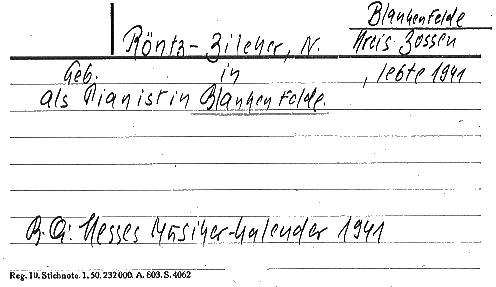 Blankenfelde
Röntz-Zilcher, N. Kreis Zossen
Geb. in , lebte 1941
als Pianist in Blankenfelde.
B.Q: Hesses Musiker-Kalender 1941
Reg. 10. Stichnote. 1. 50. 232000. A. 603. S. 4062